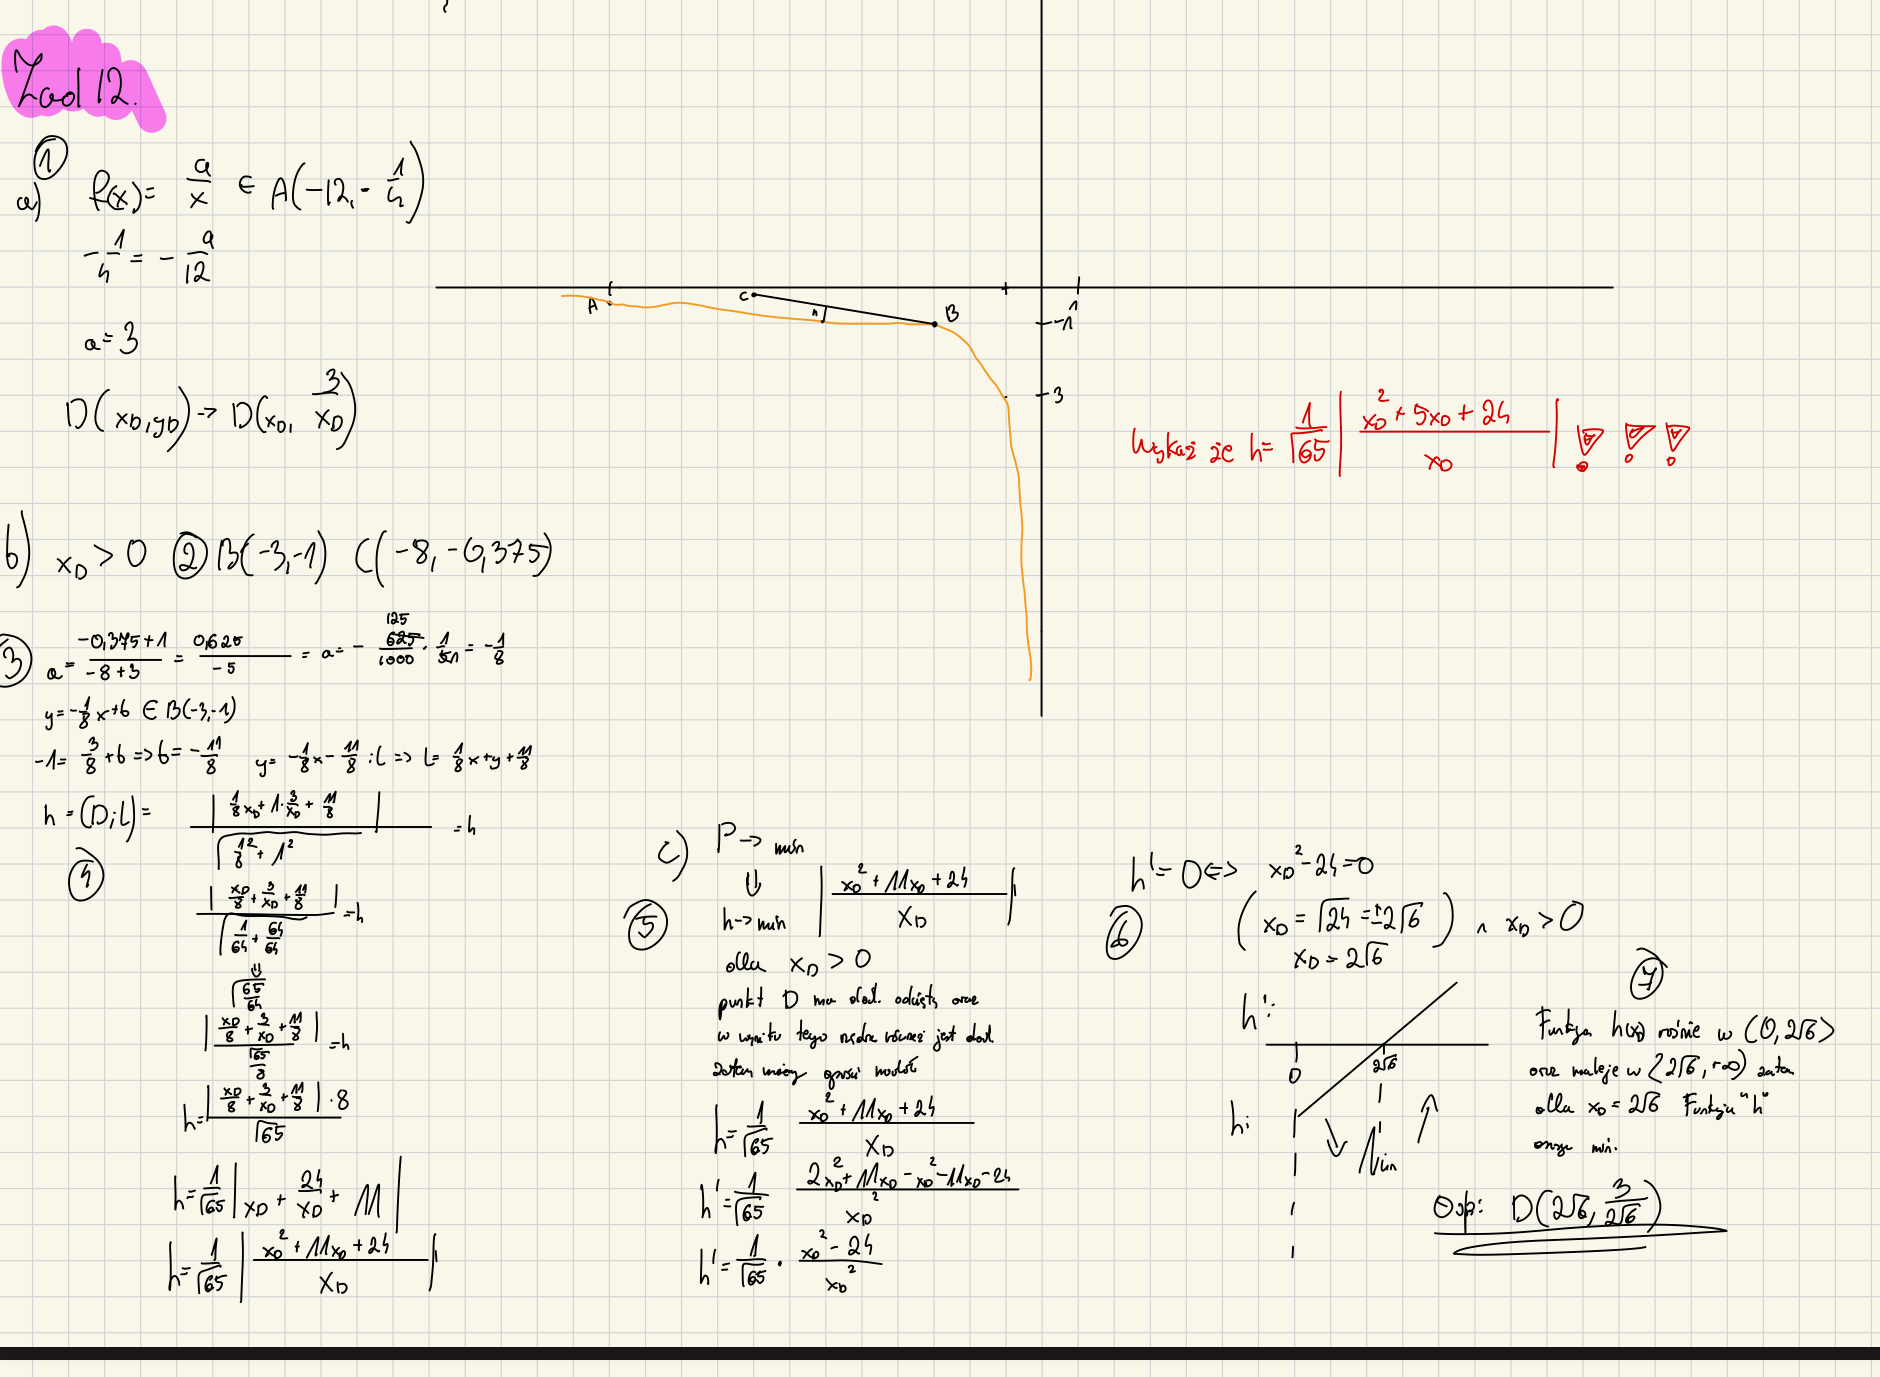 Zad 12.
①
a) f(x) = a/x ∈ A(-12, -1/4)
-1/4 = -a/12
a = 3
D(xD, yD) -> D(xD, 3/xD)
A
C
h
B
1
-1
3
Wykaż że h = 1/√65 | (xD² + 5xD + 24)/xD | ! ! !
b) xD > 0 ② B(-3,-1) C(-8, -0,375)
③ a = (-0,375+1)/(-8+3) = 0,625/-5 = a = - 625/1000 · 1/5 = -1/8
125
y = -1/8 x + b ∈ B(-3,-1)
-1 = 3/8 + b => b = -11/8 y = -1/8 x - 11/8 : l => l = 1/8 x + y + 11/8
h = (D; l) = | 1/8 xD + 1 · 3/xD + 11/8 | / √(1/8² + 1²) = h
④
| xD/8 + 3/xD + 11/8 | / √(1/64 + 64/64) = h
⇓
√(65/64)
| xD/8 + 3/xD + 11/8 | / (√65/8) = h
h = | xD/8 + 3/xD + 11/8 | · 8 / √65
h = 1/√65 | xD + 24/xD + 11 |
h = 1/√65 | (xD² + 11xD + 24)/xD |
c) P -> min
⇓
⑤ h -> min | (xD² + 11xD + 24)/xD |
dla xD > 0
punkt D ma dod. odciętą oraz
w wyniku tego rzędna również jest dod
zatem możemy opuścić moduł
h = 1/√65 (xD² + 11xD + 24)/xD
h' = 1/√65 (2xD² + 11xD - xD² - 11xD - 24)/xD²
h' = 1/√65 · (xD² - 24)/xD²
h' = 0 <=> xD² - 24 = 0
⑥ (xD = √24 = ±2√6) ∧ xD > 0
xD = 2√6
h':
0
2√6
h:
Min
⑦
Funkcja h(x) rośnie w (0, 2√6>
oraz maleje w <2√6, +∞) zatem
dla xD = 2√6 Funkcja "h"
osiąga min.
Odp: D(2√6, 3/2√6)